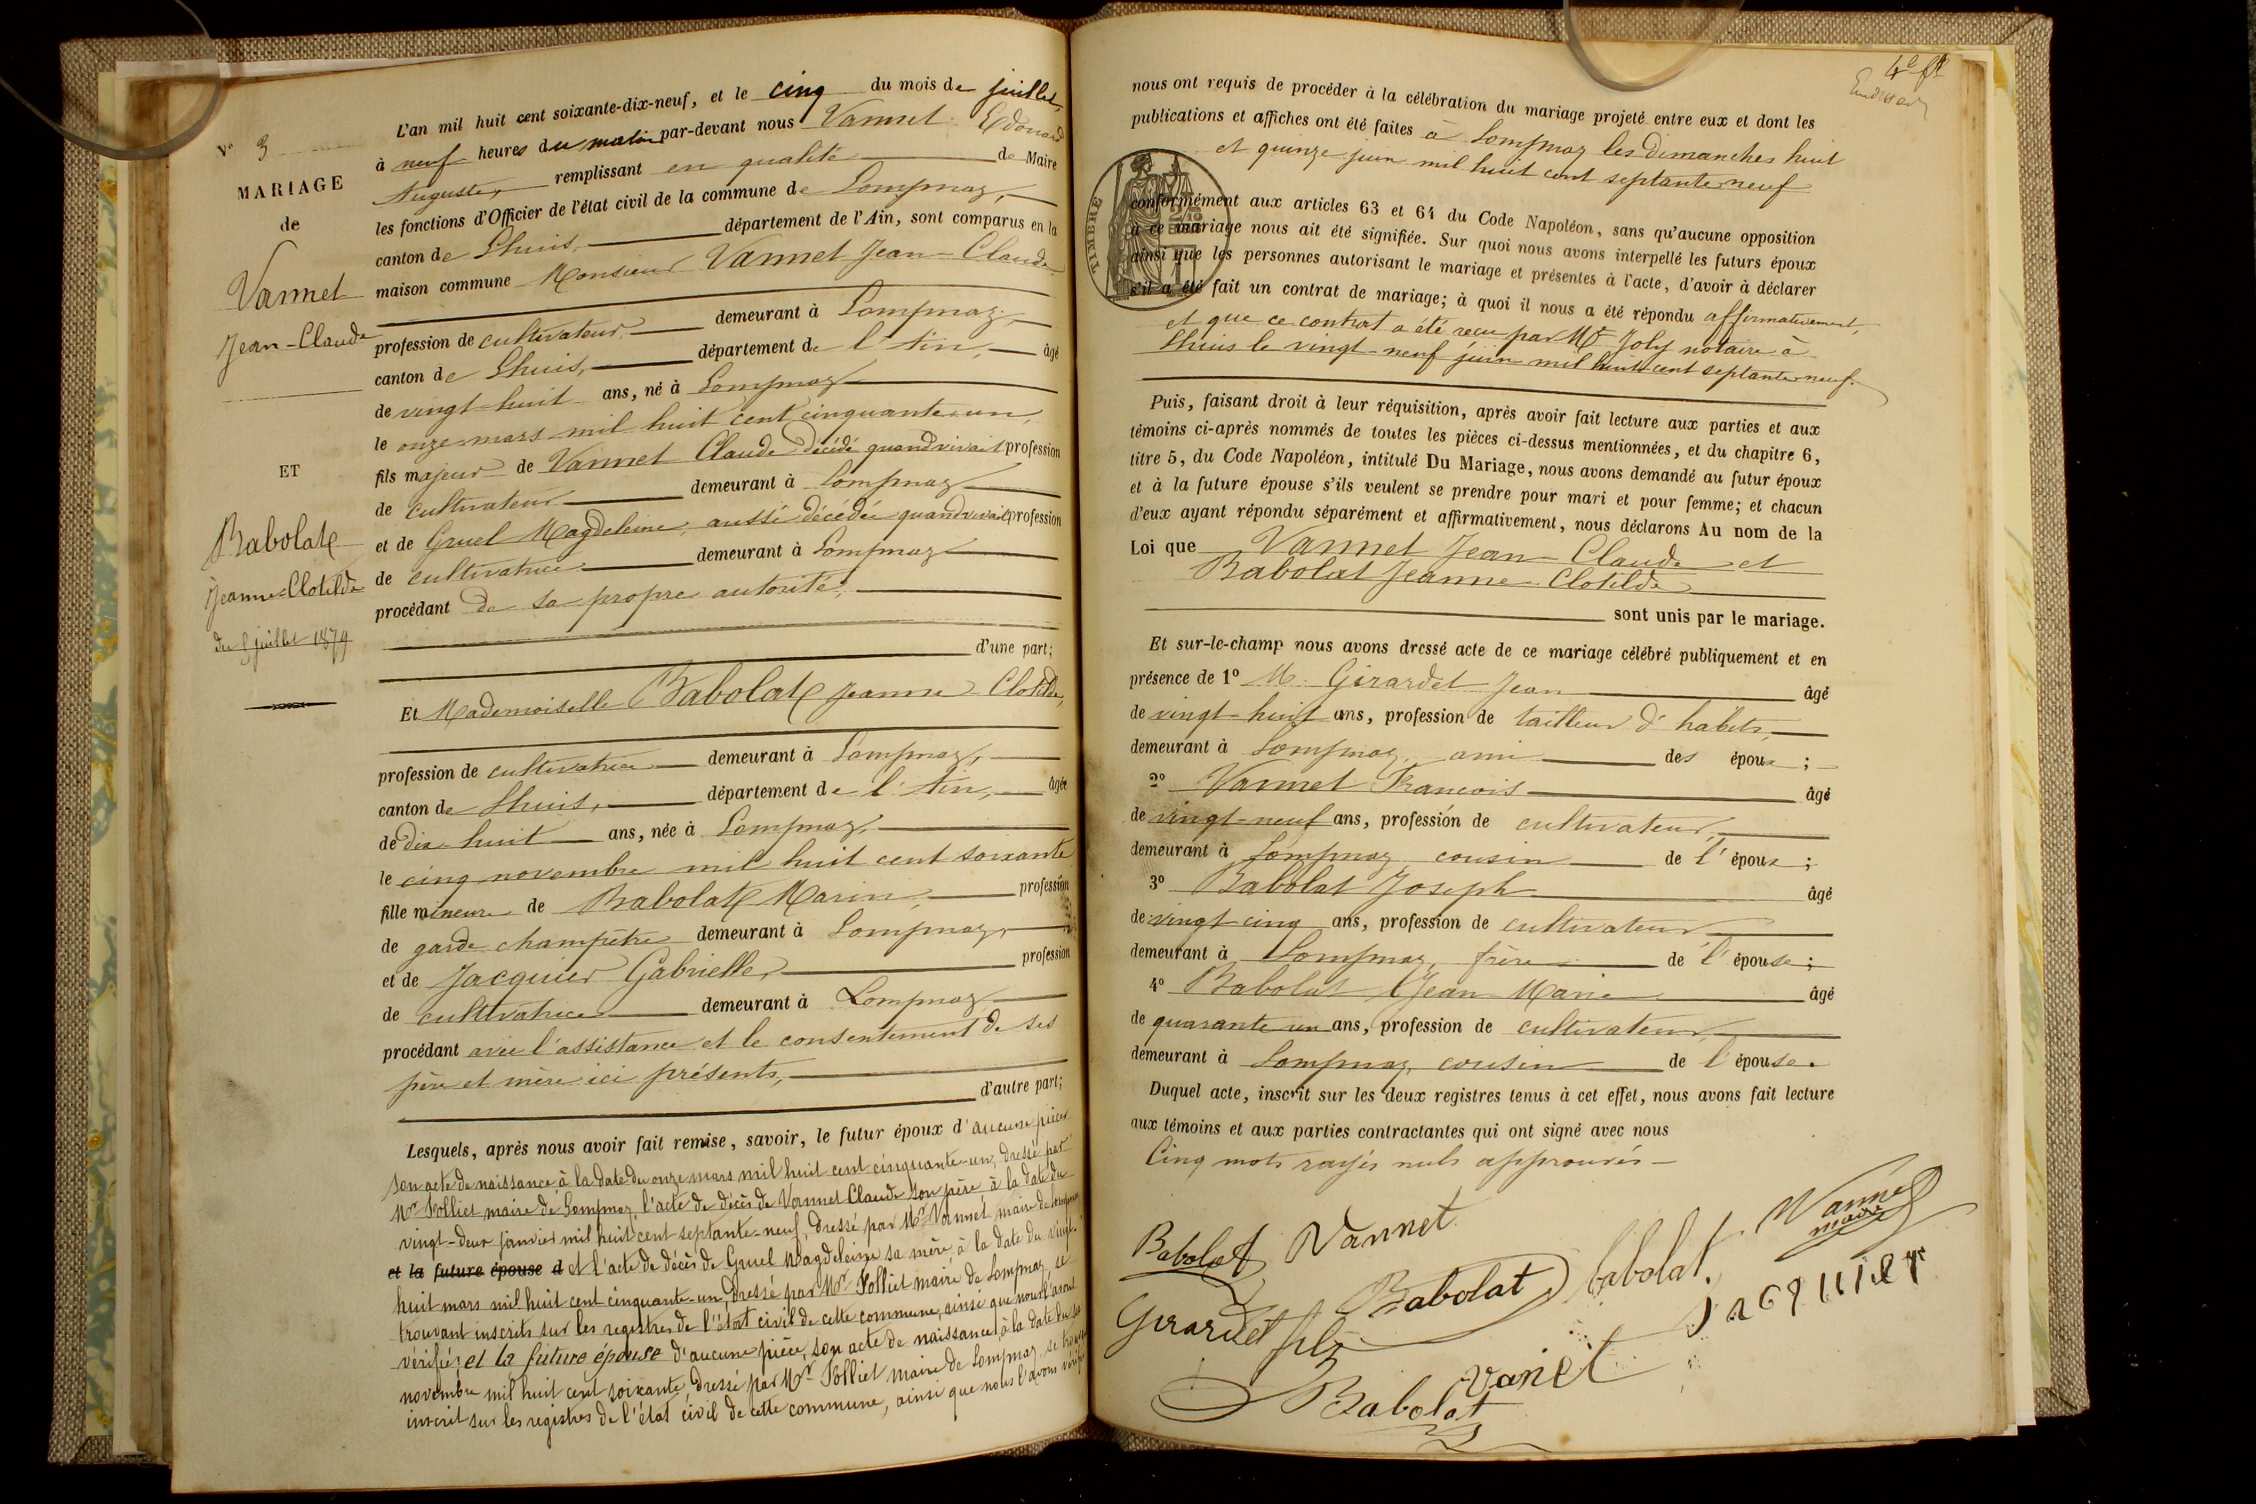 N° 3
MARIAGE
de
Vannet
Jean-Claude
ET
Babolat
Jeanne-Clotilde
du 5 juillet 1879
L'an mil huit cent soixante-dix-neuf, et le cinq du mois de juillet,
à neuf heures du matin par-devant nous Vannet Edouard
Auguste, remplissant en qualité de Maire
les fonctions d'Officier de l'état civil de la commune de Lompnaz,
canton de Lhuis, département de l'Ain, sont comparus en la
maison commune Monsieur Vannet Jean-Claude
profession de cultivateur, demeurant à Lompnaz,
canton de Lhuis, département de l'Ain, âgé
de vingt-huit ans, né à Lompnaz
le onze mars mil huit cent cinquante-un,
fils majeur de Vannet Claude décédé quand vivait profession
de cultivateur demeurant à Lompnaz
et de Gruel Magdeleine, aussi décédée quand vivait profession
de cultivatrice demeurant à Lompnaz
procédant de sa propre autorité,
d'une part;
Et Mademoiselle Babolat Jeanne Clotilde,
profession de cultivatrice demeurant à Lompnaz,
canton de Lhuis, département de l'Ain, âgée
de dix-huit ans, née à Lompnaz,
le cinq novembre mil huit cent soixante
fille mineure de Babolat Marin, profession
de garde champêtre demeurant à Lompnaz,
et de Jacquier Gabrielle, profession
de cultivatrice demeurant à Lompnaz
procédant avec l'assistance et le consentement de ses
père et mère ici présents,
d'autre part;
Lesquels, après nous avoir fait remise, savoir, le futur époux d'aucune pièce
son acte de naissance à la date du onze mars mil huit cent cinquante-un, dressé par
Mr Folliet maire de Lompnaz, l'acte de décès de Vannet Claude son père à la date du
vingt-deux janvier mil huit cent septante-neuf, dressé par Mr Vannet, maire de Lompnaz
et la future épouse d et l'acte de décès de Gruel Magdeleine sa mère, à la date du vingt-
huit mars mil huit cent cinquante-un, dressé par Mr Folliet maire de Lompnaz, se
trouvant inscrits sur les registres de l'état civil de cette commune, ainsi que nous l'avons
vérifié; et la future épouse d'aucune pièce, son acte de naissance à la date du
novembre mil huit cent soixante, dressé par Mr Folliet maire de Lompnaz, se trouve
inscrit sur les registres de l'état civil de cette commune, ainsi que nous l'avons vérifié
4e ft
nous ont requis de procéder à la célébration du mariage projeté entre eux et dont les
publications et affiches ont été faites à Lompnaz les dimanches huit
et quinze juin mil huit cent septante-neuf
TIMBRE
conformément aux articles 63 et 64 du Code Napoléon, sans qu'aucune opposition
à ce mariage nous ait été signifiée. Sur quoi nous avons interpellé les futurs époux
ainsi que les personnes autorisant le mariage et présentes à l'acte, d'avoir à déclarer
s'il a été fait un contrat de mariage; à quoi il nous a été répondu affirmativement,
et que ce contrat a été reçu par Me Joly notaire à
Lhuis le vingt-neuf juin mil huit cent septante-neuf.
Puis, faisant droit à leur réquisition, après avoir fait lecture aux parties et aux
témoins ci-après nommés de toutes les pièces ci-dessus mentionnées, et du chapitre 6,
titre 5, du Code Napoléon, intitulé Du Mariage, nous avons demandé au futur époux
et à la future épouse s'ils veulent se prendre pour mari et pour femme; et chacun
d'eux ayant répondu séparément et affirmativement, nous déclarons Au nom de la
Loi que Vannet Jean-Claude et
Babolat Jeanne-Clotilde
sont unis par le mariage.
Et sur-le-champ nous avons dressé acte de ce mariage célébré publiquement et en
présence de 1° M. Girardet Jean âgé
de vingt-huit ans, profession de tailleur d'habits,
demeurant à Lompnaz, ami des époux ;
2° Vannet François âgé
de vingt-neuf ans, profession de cultivateur,
demeurant à Lompnaz, cousin de l'époux ;
3° Babolat Joseph âgé
de vingt cinq ans, profession de cultivateur
demeurant à Lompnaz, frère de l'épouse ;
4° Babolat Jean-Marie âgé
de quarante un ans, profession de cultivateur,
demeurant à Lompnaz, cousin de l'épouse.
Duquel acte, inscrit sur les deux registres tenus à cet effet, nous avons fait lecture
aux témoins et aux parties contractantes qui ont signé avec nous
Cinq mots rayés nuls approuvés
Babolat Vannet Vannet
maire
Babolat babolat jacquier
Girardet fils
vanet
Babolat